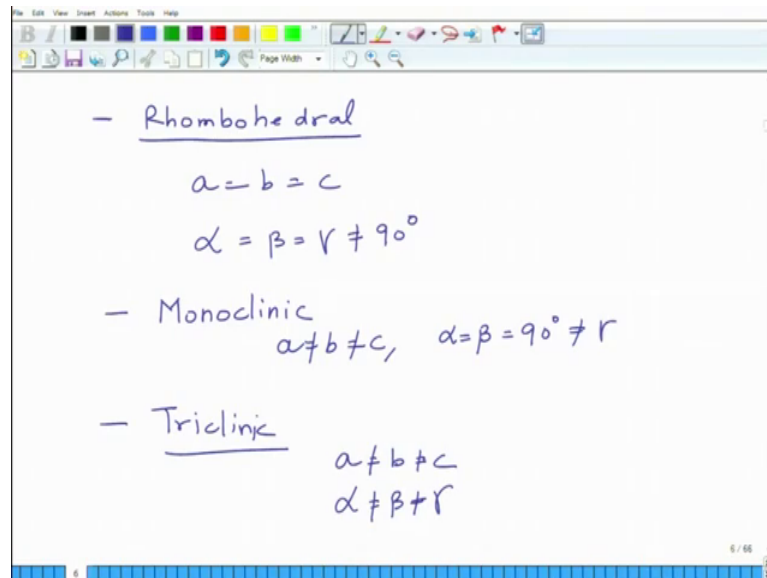 File Edit View Insert Actions Tools Help
B I
Page Width
- Rhombohedral
a = b = c
α = β = γ ≠ 90°
- Monoclinic
a ≠ b ≠ c, α = β = 90° ≠ γ
- Triclinic
a ≠ b ≠ c
α ≠ β ≠ γ
6 / 66
6